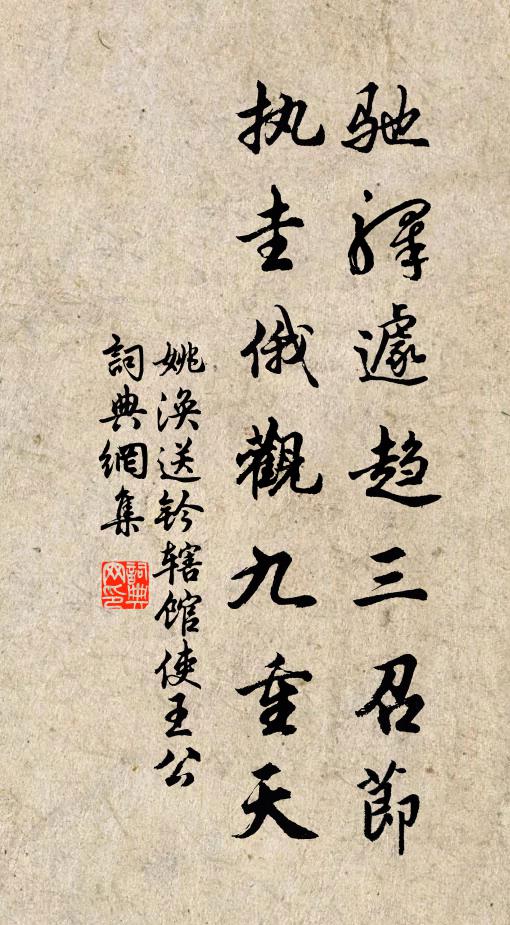 驰驿遽趋三召節
执圭俄觀九重天
姚涣送鈐辖馆使王公
詞典網集
詞典网印